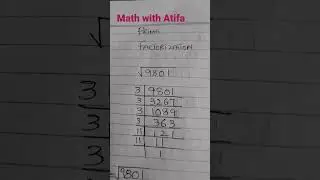 Math with Atifa
Prime
factorization
√9801
3 | 9801
3 | 3267
3 | 1089
3 | 363
11 | 121
11 | 11
1
=√9801